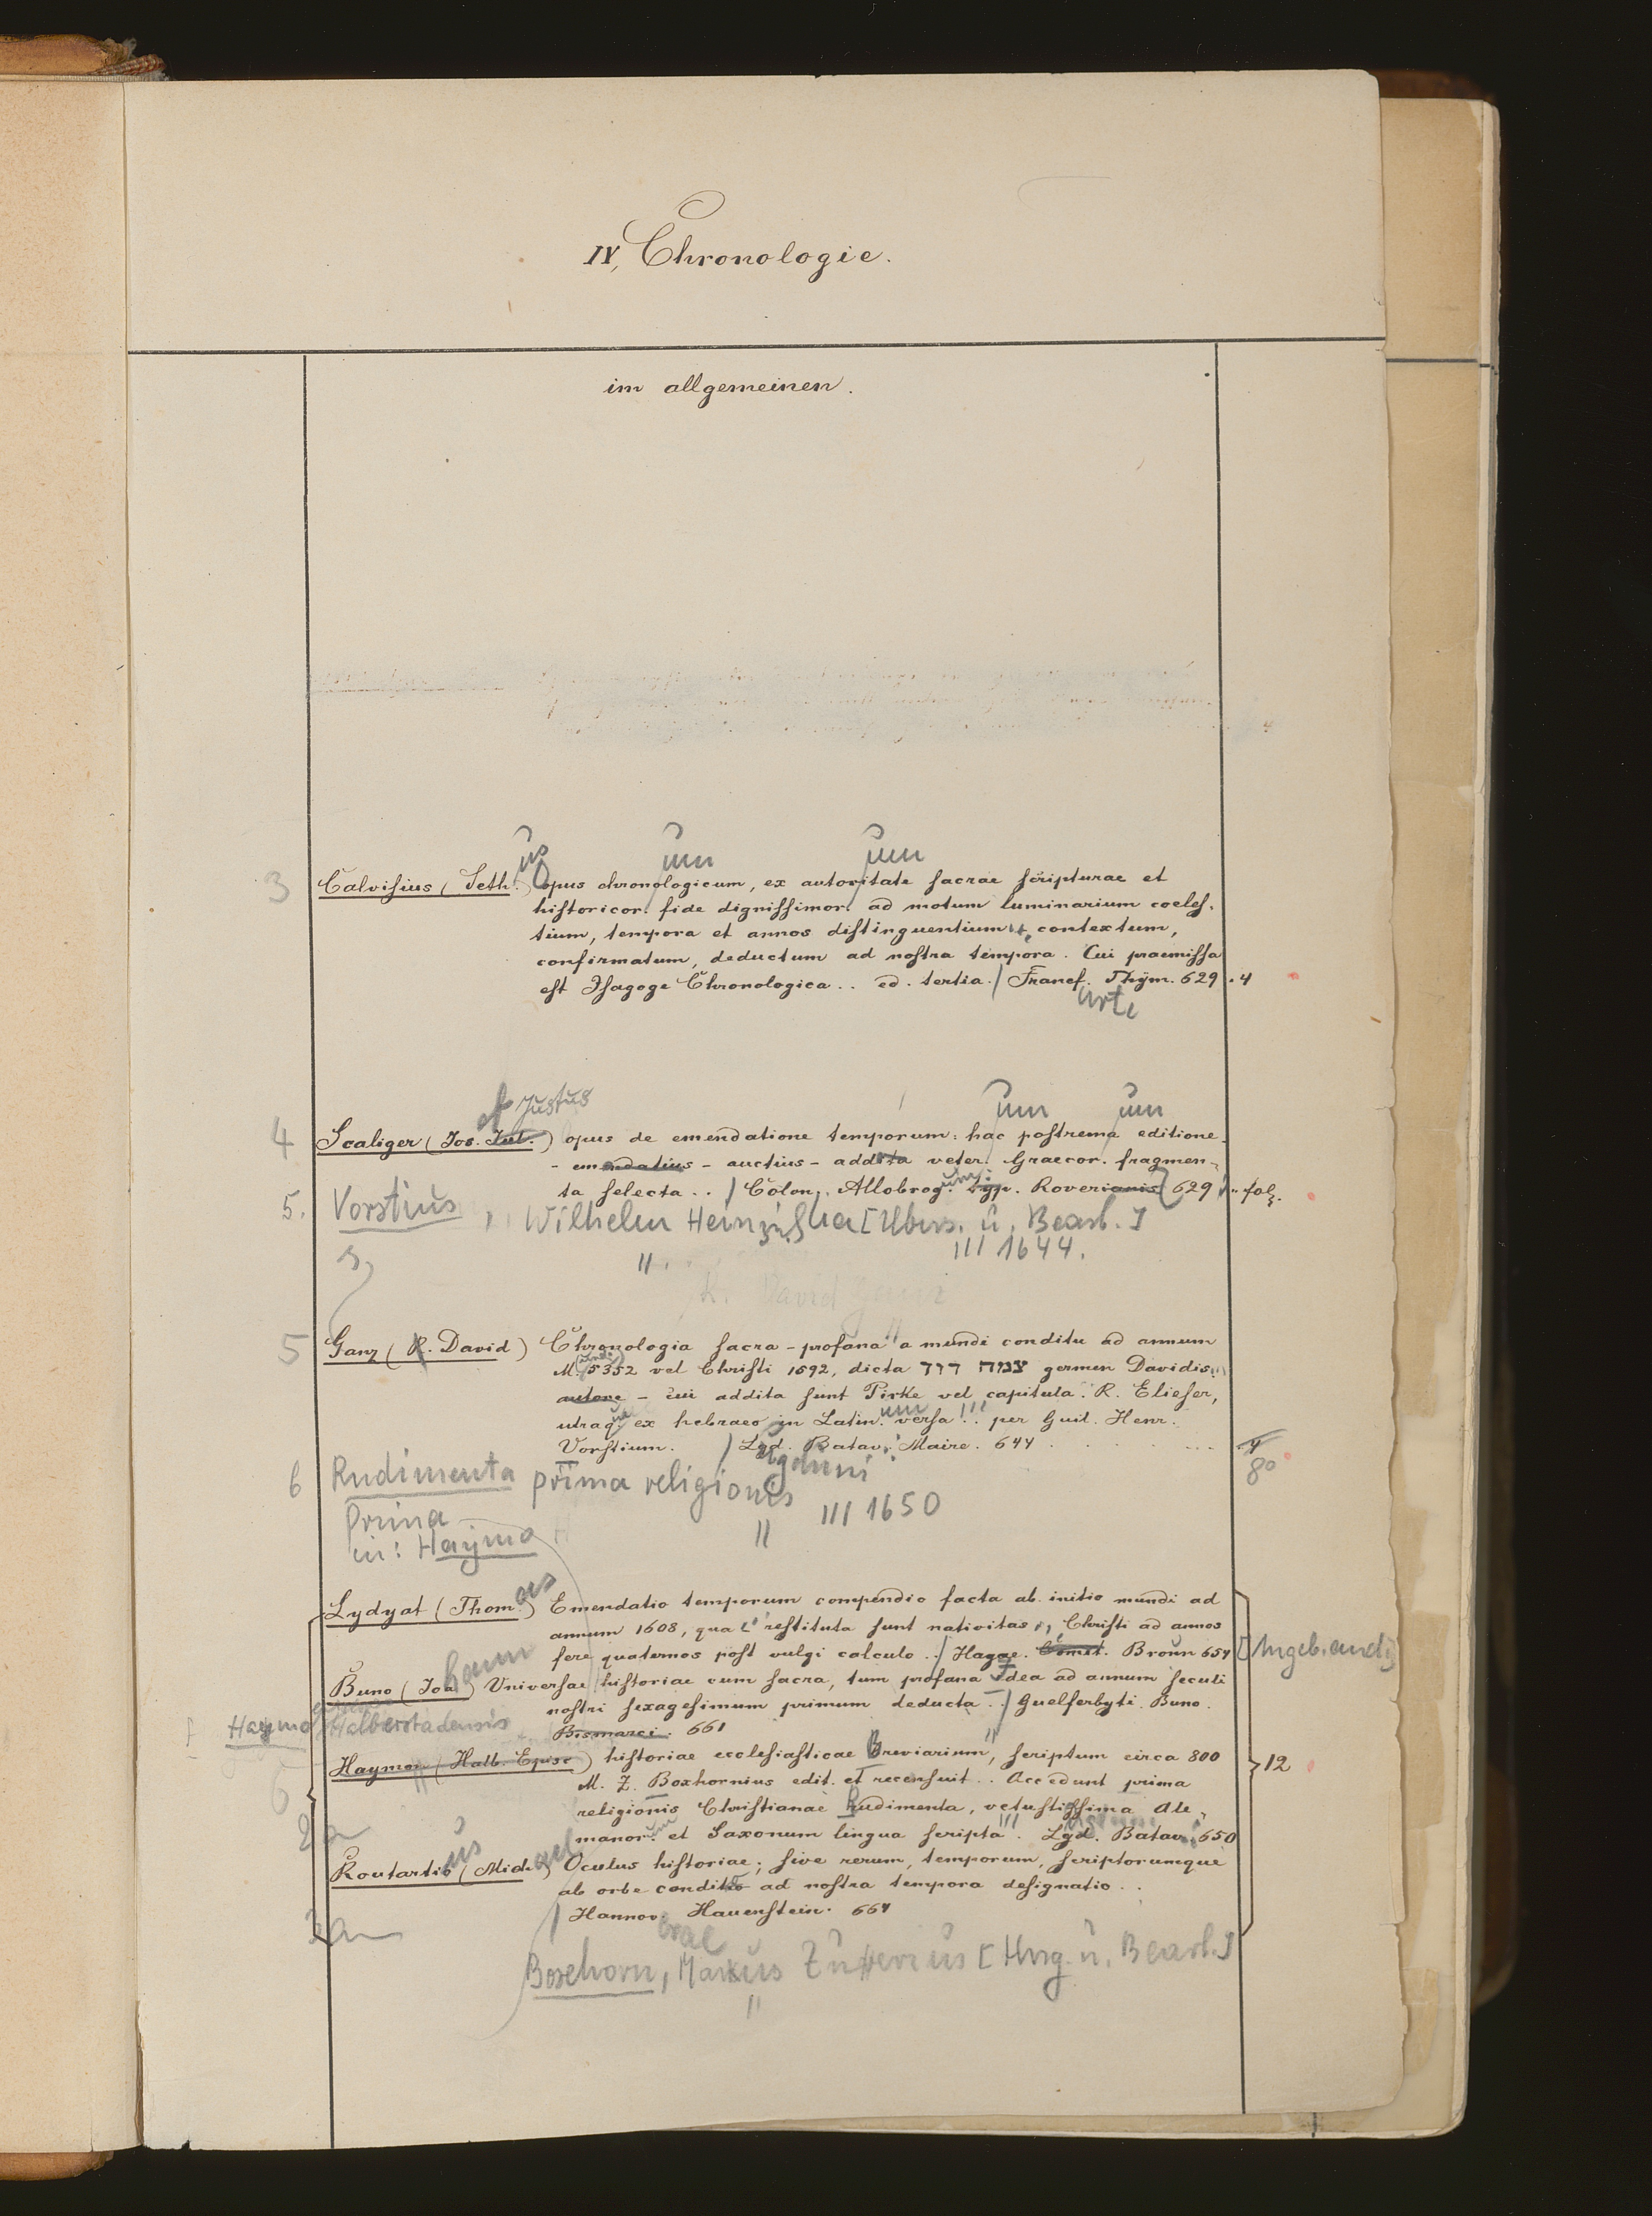 IV, Chronologie.
im allgemeinen.
us um um
3 Calvisius (Seth.) Opus chronologicum, ex autoritate sacrae scripturae et
historicor. fide dignissimor. ad motum luminarium coeles-
tium, tempora et annos distinguentium, contextum,
confirmatum, deductum ad nostra tempora. Cui praemissa
est Isagoge Chronologica .. ed. tertia. / Francf. Thym. 629 . 4
urti
Justus um um
4 Scaliger (Jos. Jul.) opus de emendatione temporum: hac postrema editione
- emendatius - auctius - addita veter. Graecor. fragmen-
ta selecta .. / Colon. Allobrog. typ. Roverianis 629 .. fol.
um
5. Vorstius, Wilhelm Heinrich [Übers. u. Bearb.]
s. " III 1644.
R. David Ganz
5 Ganz (R. David) Chronologia sacra-profana a mundi conditu ad annum
M. 5352 vel Christi 1592, dicta צמח דוד germen Davidis
autore - cui addita sunt Pirke vel capitula R. Elieser,
utraq. ex hebraeo in Latin. versa .. per Guil. Henr.
um III
Vorstium. / Lgd. Batav. Maire. 644 4
ugduni 8°
6 Rudimenta prima religionis
prima " III 1650
in: Haymo
Lydyat (Thom.as) Emendatio temporum compendio facta ab initio mundi ad
annum 1608, qua restituta sunt nativitas, Christi ad annos
fere quaternos post vulgi calculo .. / Hagae. Comit. Broun 654 [Angeb. and.]
Buno (Joa) Universae historiae cum sacra, tum profana Idea ad annum seculi
hann
nostri sexagesimum primum deducta .. / Guelferbyti. Buno.
Haymo Halberstadensis
Bismarci. 661
Haymon (Halb. Episc.) historiae ecclesiasticae Breviarium, scriptum circa 800 12
M. Z. Boxhornius edit. et recensuit .. Accedunt prima
religionis Christianae Rudimenta, vetustissima Ale-
2a manor. et Saxonum lingua scripta. Lgd. Batav. 650
Koutartis (Mich.ael) Oculus historiae; sive rerum, temporum, scriptorumque
us
ab orbe condito ad nostra tempora designatio ..
3a / Hannov. Hauenstein. 664
erae
Boxhorn, Markus Zuerius [Hrsg. u. Bearb.]
"